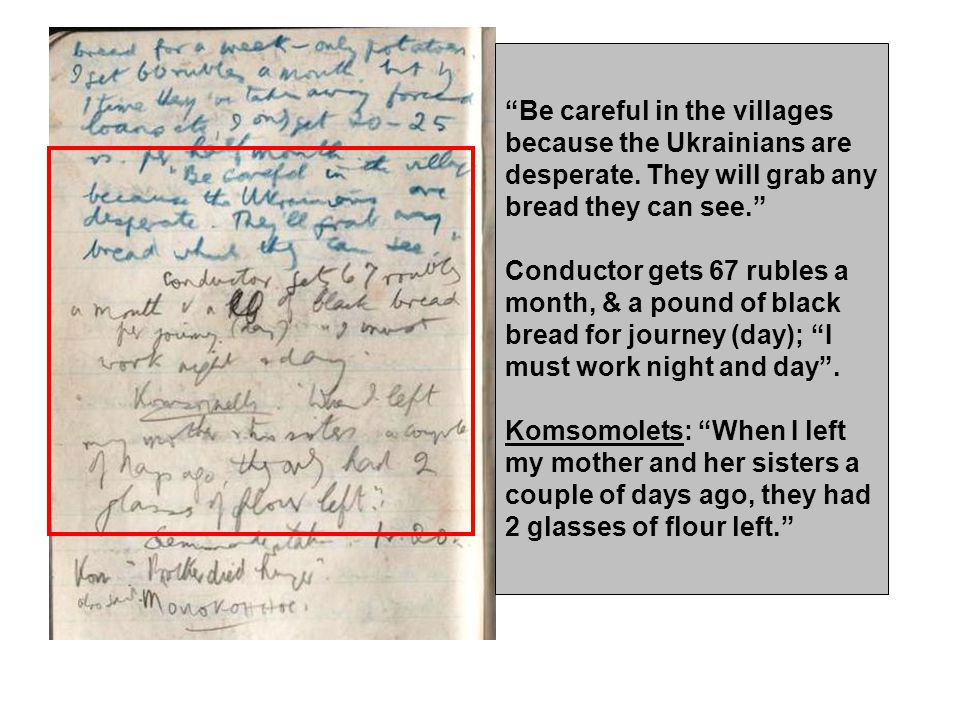 bread for a week – only potatoes.
I get 60 rubles a month, but by
1 time they've taken away forced
loans etc, I only get 20–25
rs. per half month.
"Be careful in the villages
because the Ukrainians are
desperate. They'll grab any
bread what they can see."
Conductor gets 67 roubles
a month & a of black bread
per journey (day) "I must
work night & day.
"When I left
my mother & his sisters a couple
of days ago, they only had 2
glasses of flour left".
20
Kom "Brother died hunger".
also said.
“Be careful in the villages
because the Ukrainians are
desperate. They will grab any
bread they can see.”
Conductor gets 67 rubles a
month, & a pound of black
bread for journey (day); “I
must work night and day”.
Komsomolets: “When I left
my mother and her sisters a
couple of days ago, they had
2 glasses of flour left.”